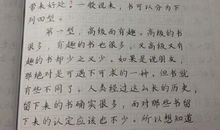 带来好处！一般说来，书可以分为下
列四型。
第一型，高级而有趣。高级的书
很多，有趣的书也很多，又高级又有
趣的书却少之又少。如果是说朋友，
那绝对是可遇不可求的一种，但书就
有些不同了，人类经过这么长的历史
留下来的书确实很多，而对那些书留
下来的认定应该也不少，所以想知道